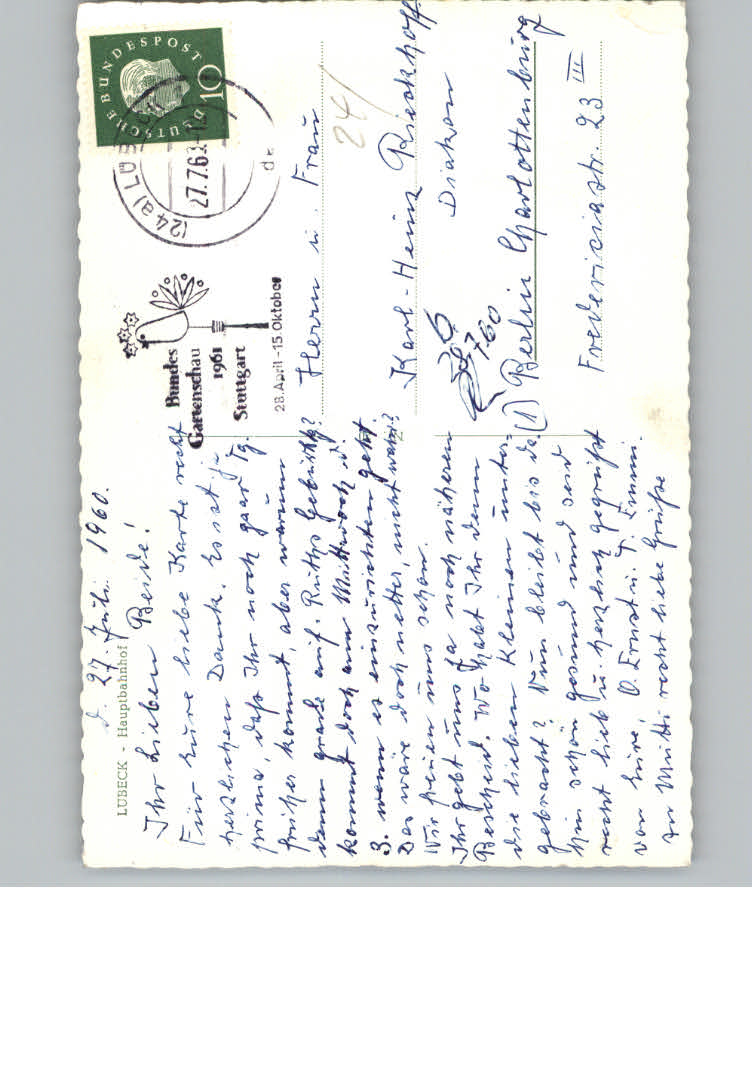 LÜBECK - Hauptbahnhof
d. 27. Juli 1960.
Ihr Lieben Beide!
Für Eure liebe Karte recht
herzlichen Dank. Es ist ja
prima, daß Ihr noch gaar Tg.
früher kommt, aber warum
denn grade auf Ruths Gebürtstg?
kommt doch am Mittwoch d.
3. wenn es einzurichten geht.
Das wäre doch netter, nicht wahr?
Wir freuen uns schon.
Ihr gebt uns ja noch näheren
Bescheid. Wo habt Ihr denn
die lieben Kleinen unter-
gebracht? Nun bleibt bis da-
hin schön gesund und seid
recht lieb u. herzlich gegrüßt
von Eure! O. Ernst u. T. Emmi.
An Mutti recht liebe Grüße
DEUTSCHE BUNDESPOST
10
(24a) LÜBECK
27.7.6
Bundes
Gartenschau
1961
Stuttgart
28. April - 15. Oktober
24/
Herrn u. Frau
Karl-Heinz Rieckhoff
Diakon
(1) Berlin Charlottenburg
Fredericiastr. 23 III